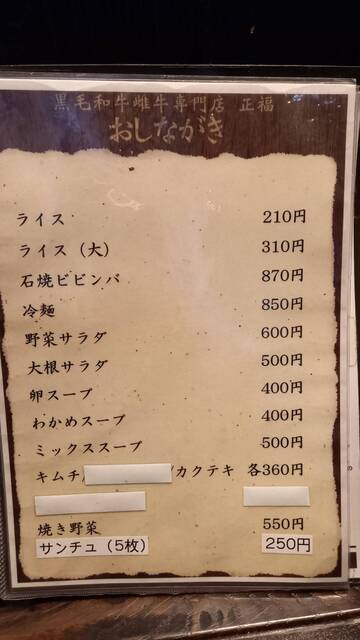 黒毛和牛雌牛専門店 正福
おしながき
ライス 210円
ライス（大） 310円
石焼ビビンバ 870円
冷麺 850円
野菜サラダ 600円
大根サラダ 500円
卵スープ 400円
わかめスープ 400円
ミックススープ 500円
キムチ/ /カクテキ 各360円
焼き野菜 550円
サンチュ（5枚） 250円